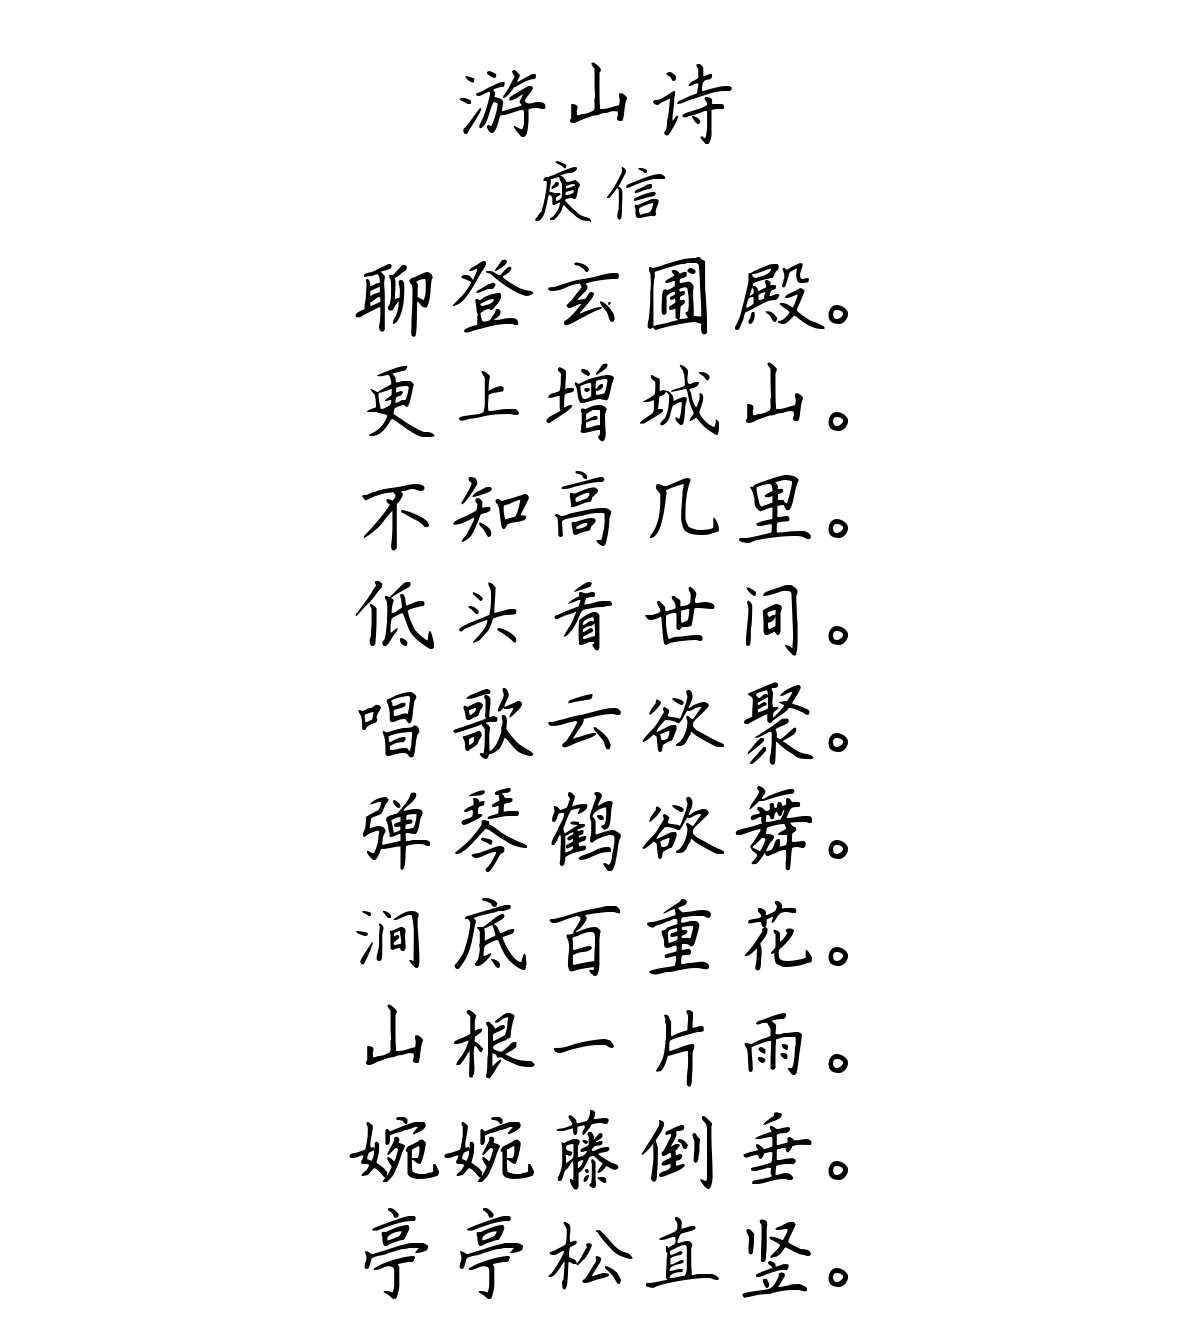 游山诗
庾信
聊登玄圃殿。
更上增城山。
不知高几里。
低头看世间。
唱歌云欲聚。
弹琴鹤欲舞。
涧底百重花。
山根一片雨。
婉婉藤倒垂。
亭亭松直竖。